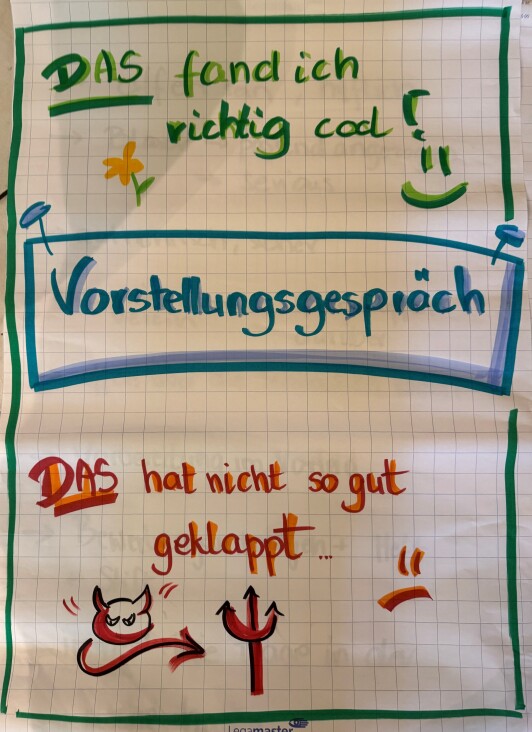 DAS fand ich
richtig cool!
Vorstellungsgespräch
DAS hat nicht so gut
geklappt...
Legamaster